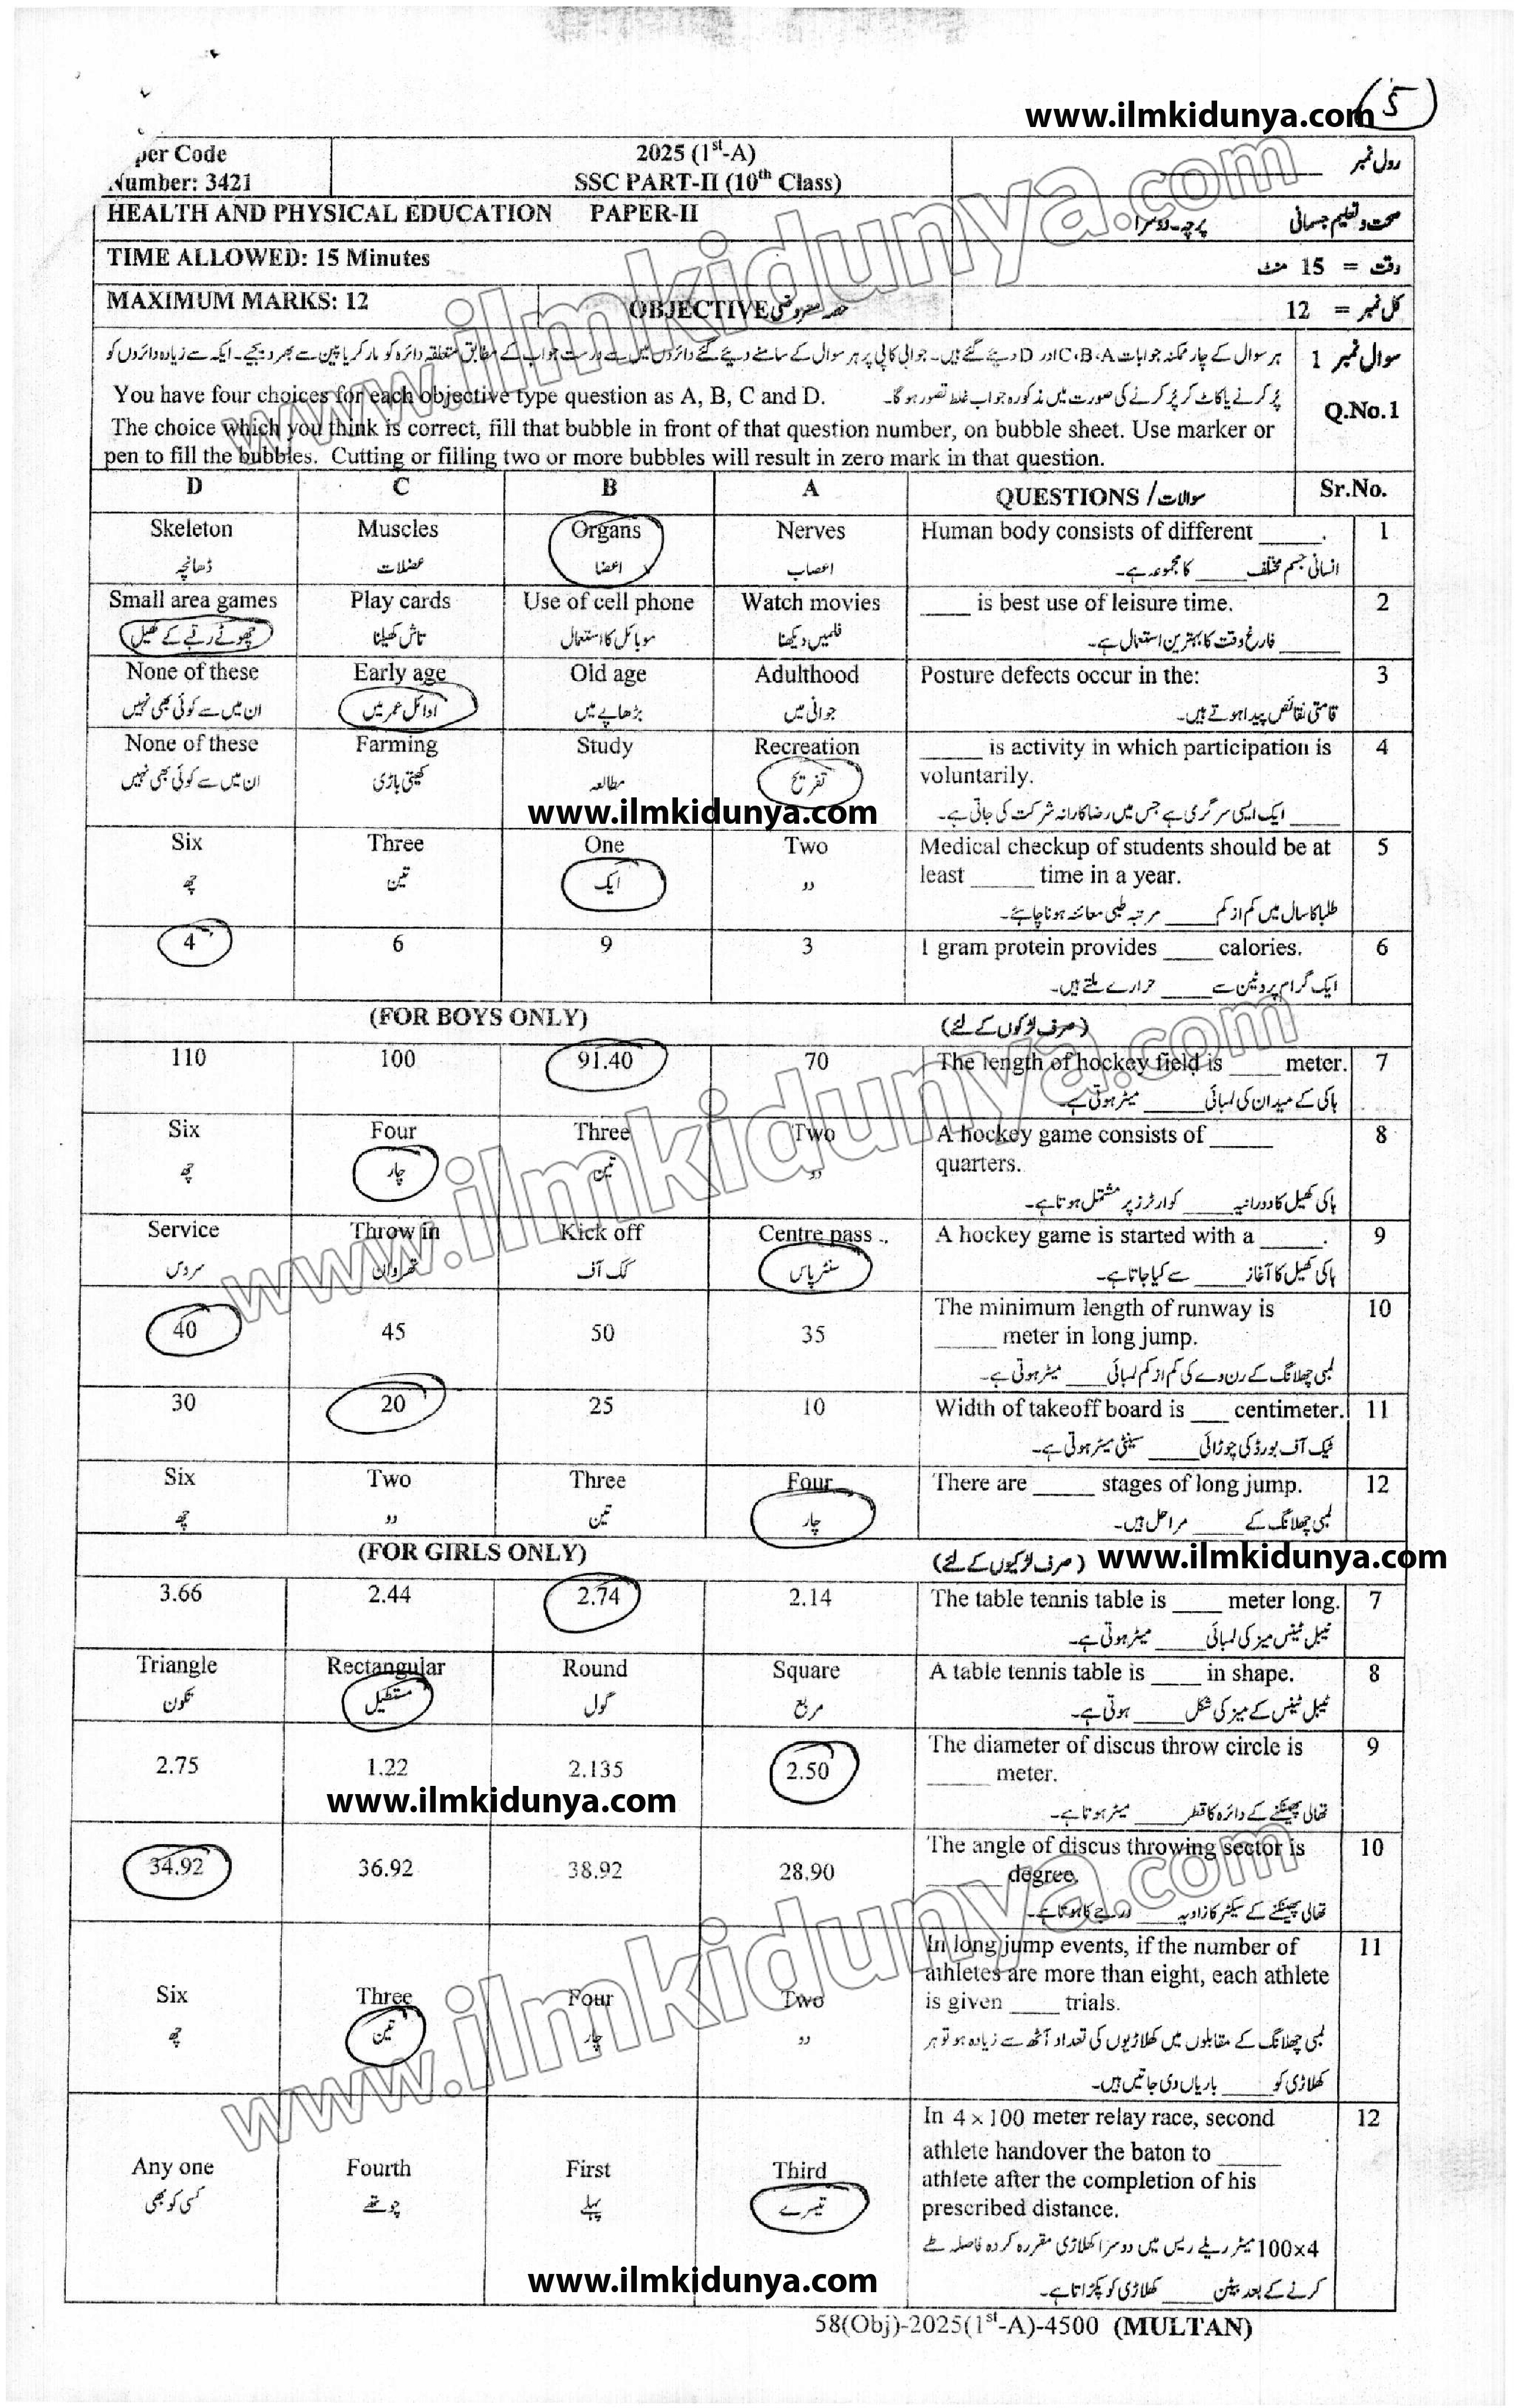 (5)
www.ilmkidunya.com
per Code
Number: 3421
2025 (1st-A)
SSC PART-II (10th Class)
رول نمبر
HEALTH AND PHYSICAL EDUCATION PAPER-II
صحت و تعلیم جسمانی پرچہ۔دوسرا
TIME ALLOWED: 15 Minutes
وقت = 15 منٹ
MAXIMUM MARKS: 12
OBJECTIVE حصہ معروضی
کل نمبر = 12
سوال نمبر 1
Q.No.1
ہر سوال کے چار ممکنہ جوابات C،B،A اور D دیئے گئے ہیں۔ جوابی کاپی پر ہر سوال کے سامنے دیئے گئے دائروں میں سے درست جواب کے مطابق متعلقہ دائرہ کو مارکر یا پین سے بھر دیجئے۔ ایک سے زیادہ دائروں کو
پُر کرنے یا کاٹ کر پُر کرنے کی صورت میں مذکورہ جواب غلط تصور ہو گا۔
You have four choices for each objective type question as A, B, C and D.
The choice which you think is correct, fill that bubble in front of that question number, on bubble sheet. Use marker or
pen to fill the bubbles. Cutting or filling two or more bubbles will result in zero mark in that question.
D C B A QUESTIONS / سوالات Sr.No.
Skeleton Muscles Organs Nerves Human body consists of different _____. 1
ڈھانچہ عضلات اعضا اعصاب انسانی جسم مختلف _____ کا مجموعہ ہے۔
Small area games Play cards Use of cell phone Watch movies ____ is best use of leisure time. 2
چھوٹے رقبے کے کھیل تاش کھیلنا موبائل کا استعمال فلمیں دیکھنا _____ فارغ وقت کا بہترین استعمال ہے۔
None of these Early age Old age Adulthood Posture defects occur in the: 3
ان میں سے کوئی بھی نہیں اوائل عمر میں بڑھاپے میں جوانی میں قامتی نقائص پیدا ہوتے ہیں۔
None of these Farming Study Recreation _____ is activity in which participation is 4
voluntarily.
ان میں سے کوئی بھی نہیں کھیتی باڑی مطالعہ تفریح _____ ایک ایسی سرگرمی ہے جس میں رضاکارانہ شرکت کی جاتی ہے۔
www.ilmkidunya.com
Six Three One Two Medical checkup of students should be at 5
least _____ time in a year.
چھ تین ایک دو طلبا کا سال میں کم از کم _____ مرتبہ طبی معائنہ ہونا چاہئے۔
4 6 9 3 1 gram protein provides ____ calories. 6
ایک گرام پروٹین سے _____ حرارے ملتے ہیں۔
(FOR BOYS ONLY) (صرف لڑکوں کے لئے)
110 100 91.40 70 The length of hockey field is ____ meter. 7
ہاکی کے میدان کی لمبائی _____ میٹر ہوتی ہے۔
Six Four Three Two A hockey game consists of _____ 8
quarters.
چھ چار تین دو ہاکی کھیل کا دورانیہ _____ کوارٹرز پر مشتمل ہوتا ہے۔
Service Throw in Kick off Centre pass A hockey game is started with a _____. 9
سروس تھرو ان کک آف سنٹر پاس ہاکی کھیل کا آغاز _____ سے کیا جاتا ہے۔
40 45 50 35 The minimum length of runway is 10
_____ meter in long jump.
لمبی چھلانگ کے رن وے کی کم از کم لمبائی _____ میٹر ہوتی ہے۔
30 20 25 10 Width of takeoff board is ___ centimeter. 11
ٹیک آف بورڈ کی چوڑائی _____ سینٹی میٹر ہوتی ہے۔
Six Two Three Four There are _____ stages of long jump. 12
چھ دو تین چار لمبی چھلانگ کے _____ مراحل ہیں۔
(FOR GIRLS ONLY) (صرف لڑکیوں کے لئے) www.ilmkidunya.com
3.66 2.44 2.74 2.14 The table tennis table is ____ meter long. 7
ٹیبل ٹینس میز کی لمبائی _____ میٹر ہوتی ہے۔
Triangle Rectangular Round Square A table tennis table is ____ in shape. 8
تکون مستطیل گول مربع ٹیبل ٹینس کے میز کی شکل _____ ہوتی ہے۔
2.75 1.22 2.135 2.50 The diameter of discus throw circle is 9
_____ meter.
www.ilmkidunya.com
تھالی پھینکنے کے دائرہ کا قطر _____ میٹر ہوتا ہے۔
34.92 36.92 38.92 28.90 The angle of discus throwing sector is 10
_____ degree.
تھالی پھینکنے کے سیکٹر کا زاویہ _____ درجے کا ہوتا ہے۔
In long jump events, if the number of 11
athletes are more than eight, each athlete
Six Three Four Two is given ____ trials.
چھ تین چار دو لمبی چھلانگ کے مقابلوں میں کھلاڑیوں کی تعداد آٹھ سے زیادہ ہو تو ہر
کھلاڑی کو _____ باریاں دی جاتیں ہیں۔
In 4 × 100 meter relay race, second 12
athlete handover the baton to _____
Any one Fourth First Third athlete after the completion of his
prescribed distance.
کسی کو بھی چوتھے پہلے تیسرے 4×100 میٹر ریلے ریس میں دوسرا کھلاڑی مقررہ کردہ فاصلہ طے
کرنے کے بعد بیٹن _____ کھلاڑی کو پکڑاتا ہے۔
www.ilmkidunya.com
58(Obj)-2025(1st-A)-4500 (MULTAN)
www.ilmkidunya.com
www.ilmkidunya.com
www.ilmkidunya.com